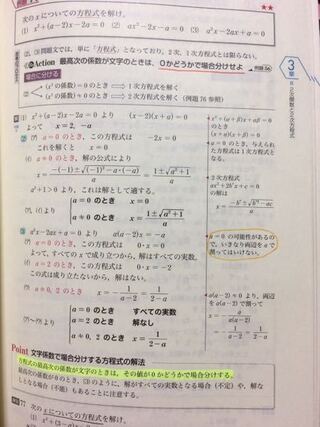 次のxについての方程式を解け。
(1) x²+(a-2)x-2a=0 (2) ax²-2x-a=0 (3) a²x-2ax+a=0
(2), (3) 問題文では、単に「方程式」となっており、2次、1次方程式とは限らない。
Action 最高次の係数が文字のときは、0かどうかで場合分けせよ
場合に分ける
(x²の係数)=0のとき ⇒ 1次方程式を解く
(x²の係数)≠0のとき ⇒ 2次方程式を解く (例題76参照)
3章
2次関数と2次方程式
(1) x²+(a-2)x-2a=0 より (x-2)(x+a)=0
よって x=2, -a
(2) (ア) a=0のとき、この方程式は -2x=0
これを解くと x=0
(イ) a≠0のとき、解の公式により
a²+1>0 より、これは解として適する。
(ア), (イ)より
a=0のとき x=0
a≠0のとき x=1±√a²+1/a
(3) a²x-2ax+a=0 より a(a-2)x=-a
(ア) a=0のとき、この方程式は 0·x=0
よって、すべてのxで成り立つから、解はすべての実数。
(イ) a=2のとき、この方程式は 0·x=-2
この式は成り立たないから、解はない。
(ウ) a≠0, 2のとき
(ア)～(ウ)より
a=0のとき すべての実数
a=2のとき 解なし
a≠0, 2のとき x=-1/a-2
x²+(α+β)x+αβ=0
のとき
(x+α)(x+β)=0
a=0のとき、与えられた方程式は1次方程式となる。
2次方程式
ax²+2b'x+c=0
の解は
x=-b'±√b'²-ac/a
a=0の可能性があるので、いきなり両辺をaで割ってはいけない。
a(a-2)≠0より、両辺をa(a-2)で割って
Point 文字係数で場合分けする方程式の解法
方程式の最高次の係数が文字のときは、その値が0かどうかで場合分けする。
最高次の係数が0のとき、(3)のように、解がすべての実数となる場合(不定)や、解なしとなる場合(不能)もあることに注意する。
77 次のxについての方程式を解け。